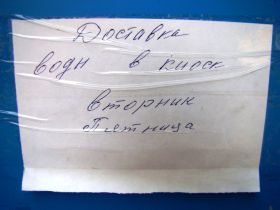 Доставка
воды в киоск
вторник
пятница